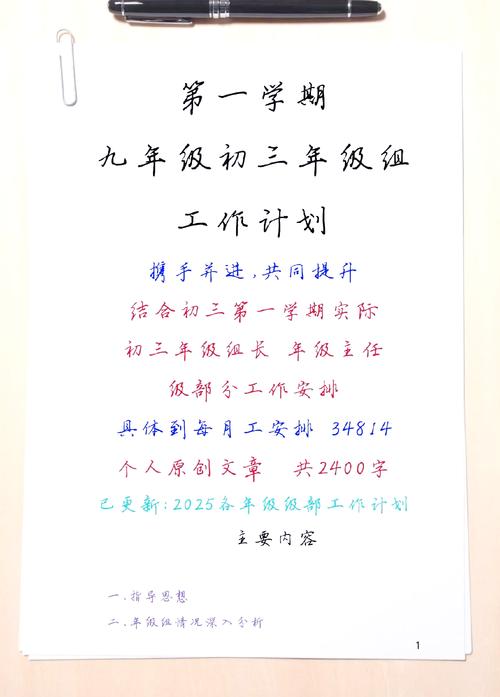 第一学期
九年级初三年级组
工作计划
携手并进,共同提升
结合初三第一学期实际
初三年级组长 年级主任
级部分工作安排
具体到每月工安排 34814
个人原创文章 共2400字
已更新:2025各年级级部工作计划
主要内容
一.指导思想
二.年级组情况深入分析
1